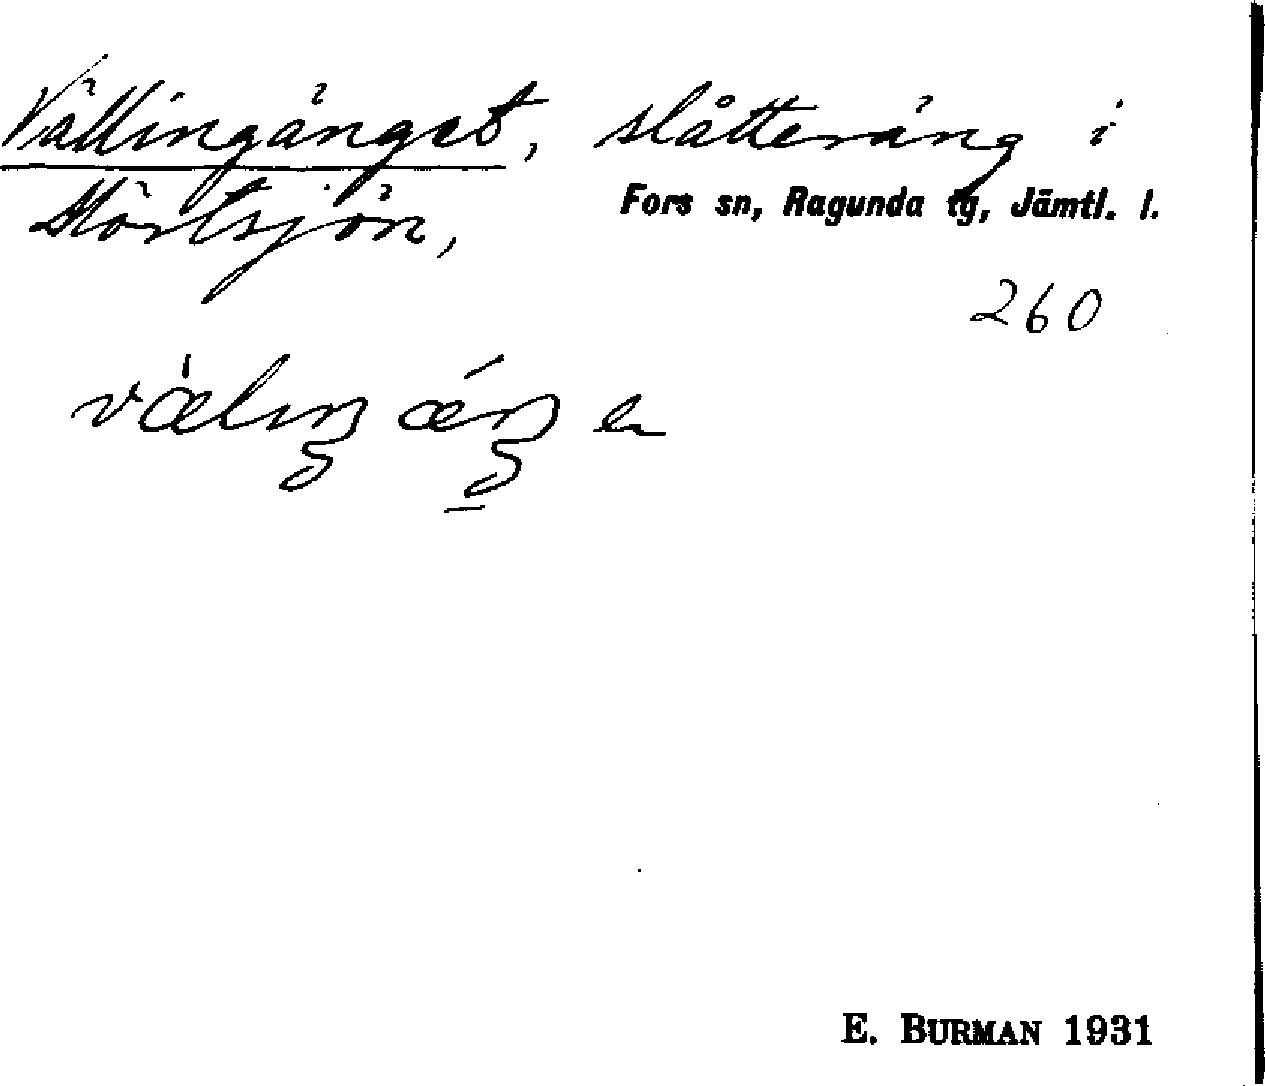 Vällingänget, slåtteräng i
Mörtsjön, Fors sn, Ragunda tg, Jämtl. l.
260
E. BURMAN 1931